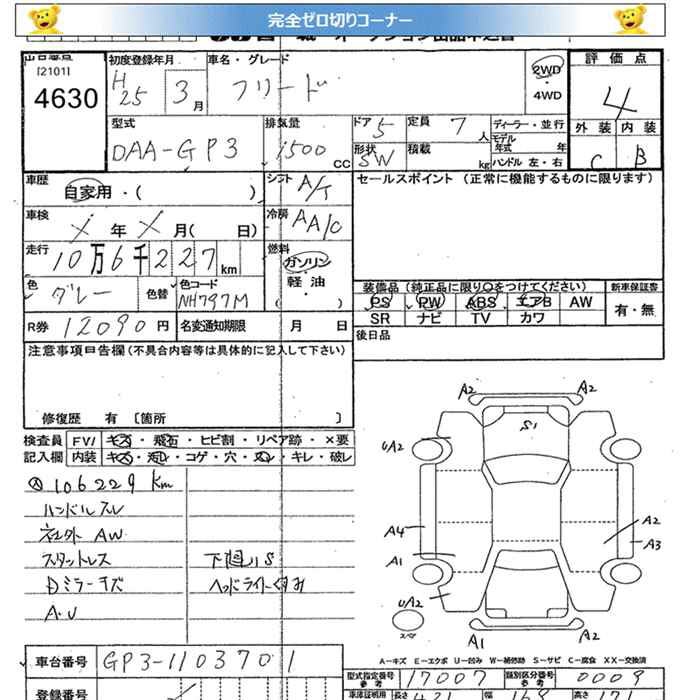 完全ゼロ切りコーナー
出品番号 初度登録年月 車名・グレード 評価点
[2101] H25 3月 フリード 2WD・4WD 4
4630
型式 排気量 ドア 5 定員 7人 ディーラー・並行 外装 内装
DAA-GP3 1500cc 形状 SW 積載 kg モデル年式 年 C B
ハンドル 左・右
車歴 自家用・( ) シフト A/T セールスポイント (正常に機能するものに限ります)
車検 年 月( 日) 冷房 AA/C
走行 10万6千227km 燃料 ガソリン・軽油 ( )
色 グレー 色替 色コード NH797M 装備品 (純正品に限り○をつけてください) 新車保証書
PS PW ABS エアB AW 有・無
R券 12090円 名変通知期限 月 日 SR ナビ TV カワ
注意事項申告欄(不具合内容等は具体的に記入して下さい) 後日品
修復歴 有 [箇所 ]
検査員 F∨/ キズ・飛石・ヒビ割・リペア跡・×要
記入欄 内装 キズ・汚レ・コゲ・穴・スレ・キレ・破レ
106229 Km
ハンドルスレ
社外 AW
スタットレス 下廻りS
Dミラーキズ ヘッドライトくすみ
A・U
A2 A2
S1
UA2
A4 A2
A1 A3
UA2
A1 A2
A-キズ E-エクボ U-凹み W-補修跡 S-サビ C-腐食 XX-交換済
車台番号 GP3-1103701
型式指定番号 参考 17007 類別区分番号 参考 0009
登録番号 車庫証明用 長さ 421 幅 169 高さ 17